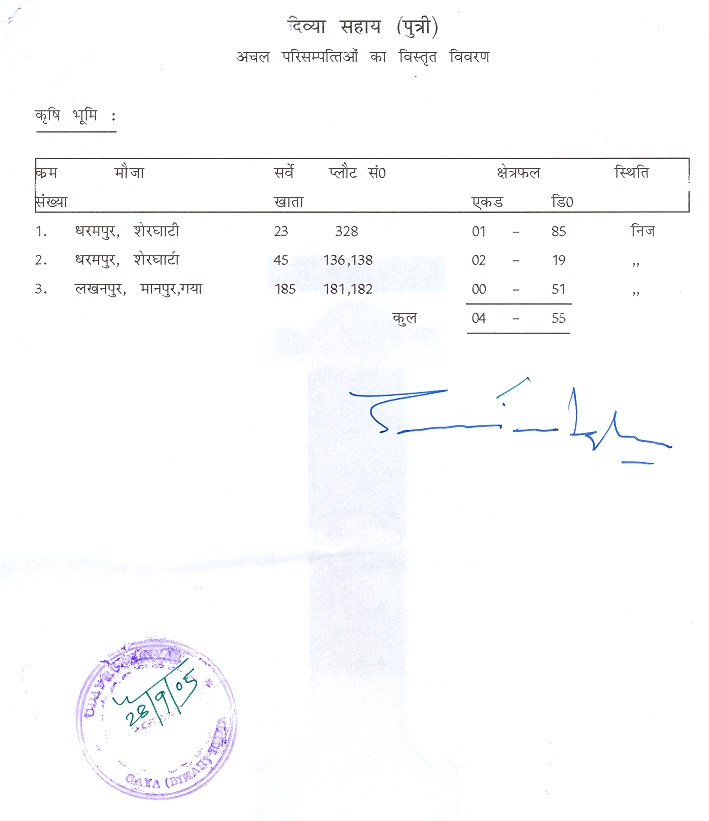 दिव्या सहाय (पुत्री)
अचल परिसम्पत्तिओं का विस्तृत विवरण
कृषि भूमि :
कम मौजा सर्वे प्लौट सं0 क्षेत्रफल स्थिति
संख्या खाता एकड डि0
1. धरमपुर, शेरघाटी 23 328 01 – 85 निज
2. धरमपुर, शेरघाटी 45 136,138 02 – 19 ,,
3. लखनपुर, मानपुर,गया 185 181,182 00 – 51 ,,
कुल 04 – 55
28/9/05
GAYA (BIHAR)